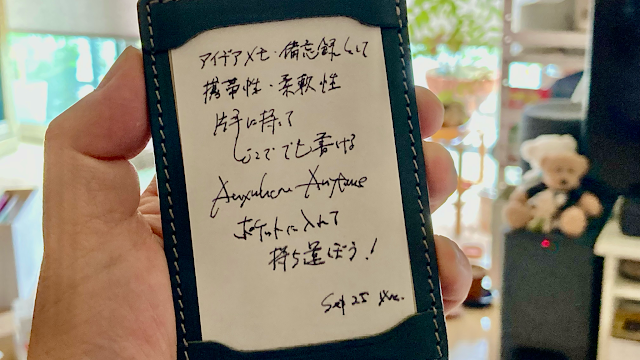 アイデアメモ・備忘録として
携帯性・柔軟性
片手に持って
どこででも書ける
Anywhere Anytime
ポケットに入れて
持ち運ぼう!
Sep 25